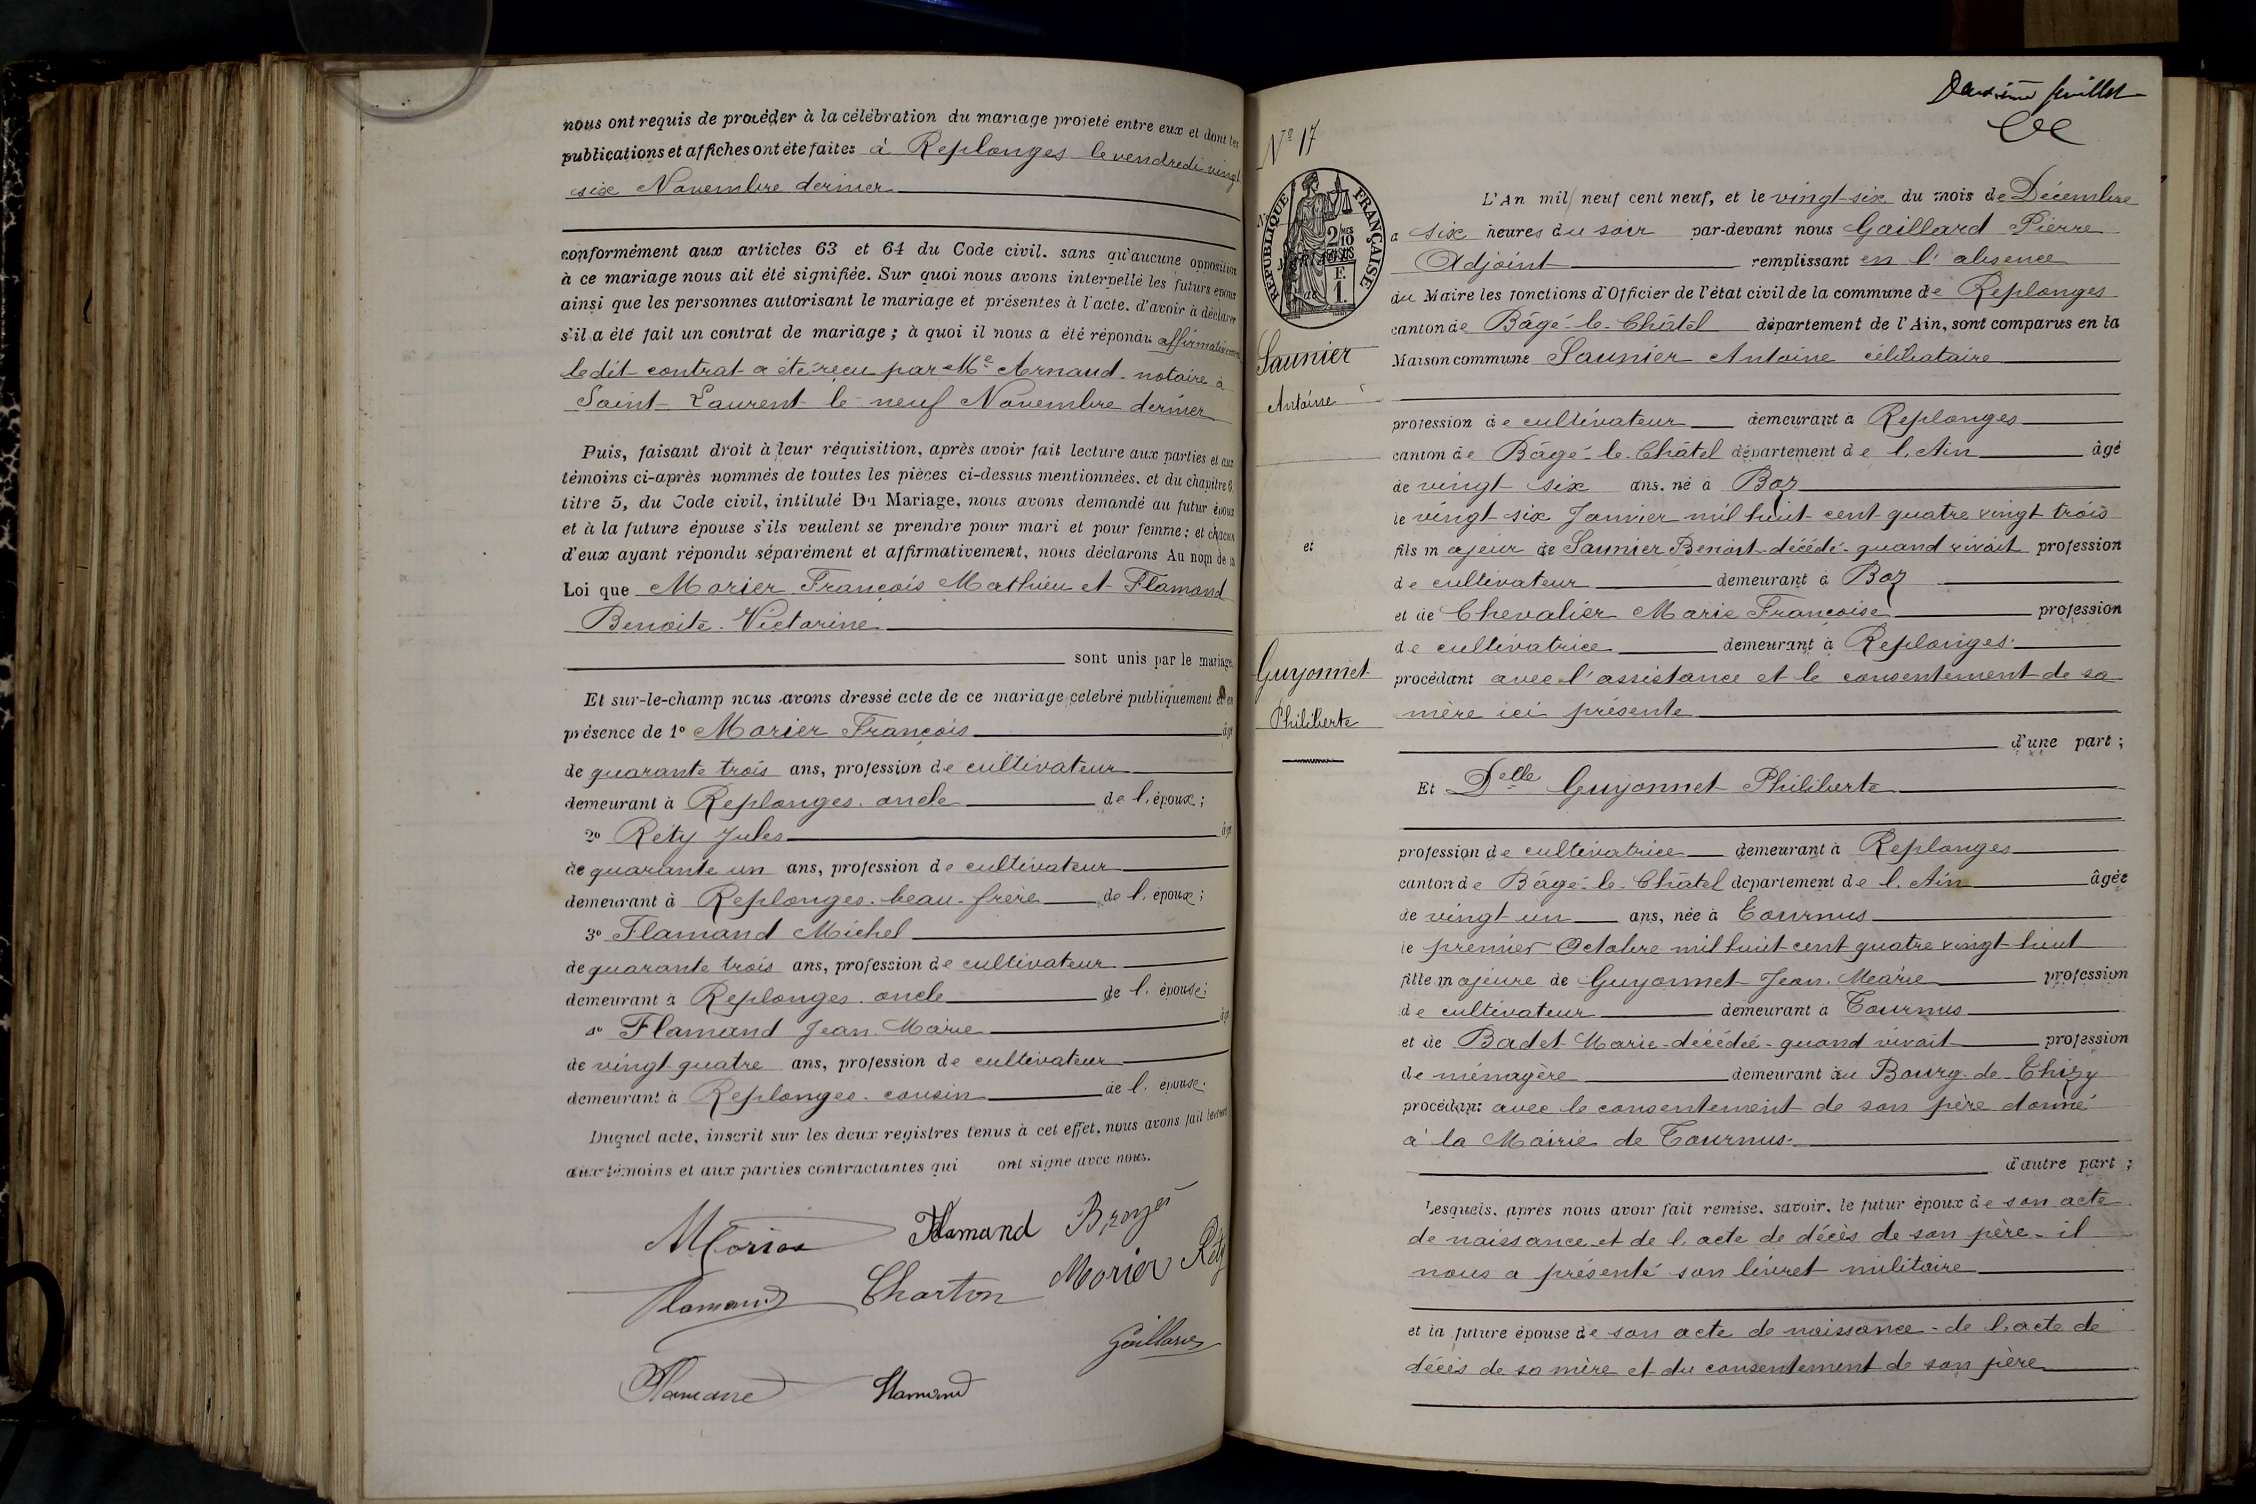 nous ont requis de procéder à la célébration du mariage projeté entre eux et dont les
publications et affiches ont été faites à Replonges le vendredi vingt
six Novembre dernier
conformément aux articles 63 et 64 du Code civil. sans qu'aucune opposition
à ce mariage nous ait été signifiée. Sur quoi nous avons interpellé les futurs époux
ainsi que les personnes autorisant le mariage et présentes à l'acte. d'avoir à déclarer
s'il a été fait un contrat de mariage ; à quoi il nous a été répondu affirmativement
le dit contrat a été reçu par Me Arnaud notaire à
Saint-Laurent le neuf Novembre dernier
Puis, faisant droit à leur réquisition, après avoir fait lecture aux parties et aux
témoins ci-après nommés de toutes les pièces ci-dessus mentionnées. et du chapitre 6.
titre 5, du Code civil, intitulé Du Mariage, nous avons demandé au futur époux
et à la future épouse s'ils veulent se prendre pour mari et pour femme ; et chacun
d'eux ayant répondu séparément et affirmativement, nous déclarons Au nom de la
Loi que Morier François Mathieu et Flamand
Benoite Victorine
sont unis par le mariage.
Et sur-le-champ nous avons dressé acte de ce mariage célébré publiquement et en
présence de 1º Morier François âgé
de quarante trois ans, profession de cultivateur
demeurant à Replonges. oncle de l'époux ;
2º Réty Jules âgé
de quarante un ans, profession de cultivateur
demeurant à Replonges. beau-frère de l'époux ;
3º Flamand Michel
de quarante trois ans, profession de cultivateur
demeurant à Replonges. oncle de l'épouse ;
4º Flamand Jean Marie âgé
de vingt quatre ans, profession de cultivateur
demeurant à Replonges. cousin de l'épouse.
Duquel acte, inscrit sur les deux registres tenus à cet effet, nous avons fait lecture
aux témoins et aux parties contractantes qui ont signé avec nous.
Morier Flamand Broyer
Flamand Charton Morier Réty
Gaillard
Flamand Flamand
Deuxième feuillet
Nº 17
RÉPUBLIQUE FRANÇAISE
Saunier
Antoine
et
Guyonnet
Philiberte
L'An mil neuf cent neuf, et le vingt-six du mois de Décembre
à six heures du soir par-devant nous Gaillard Pierre
Adjoint remplissant en l'absence
du Maire les fonctions d'Officier de l'état civil de la commune de Replonges
canton de Bâgé-le-Châtel département de l'Ain, sont comparus en la
Maison commune Saunier Antoine célibataire
profession de cultivateur demeurant à Replonges
canton de Bâgé-le-Châtel département de l'Ain âgé
de vingt six ans. né à Boz
le vingt-six Janvier mil huit cent quatre vingt trois
fils majeur de Saunier Benoit-décédé-quand vivait profession
de cultivateur demeurant à Boz
et de Chevalier Marie Françoise profession
de cultivatrice demeurant à Replonges.
procédant avec l'assistance et le consentement de sa
mère ici présente
d'une part ;
Et Delle Guyonnet Philiberte
profession de cultivatrice demeurant à Replonges
canton de Bâgé-le-Châtel département de l'Ain âgée
de vingt un ans, née à Tournus
le premier Octobre mil huit cent quatre vingt huit
fille majeure de Guyonnet Jean Marie profession
de cultivateur demeurant à Tournus
et de Badet Marie-décédée-quand vivait profession
de ménagère demeurant au Bourg-de-Thizy
procédant avec le consentement de son père donné
à la Mairie de Tournus.
d'autre part ;
Lesquels, après nous avoir fait remise. savoir. le futur époux de son acte
de naissance et de l'acte de décès de son père - il
nous a présenté son livret militaire
et la future épouse de son acte de naissance - de l'acte de
décès de sa mère et du consentement de son père